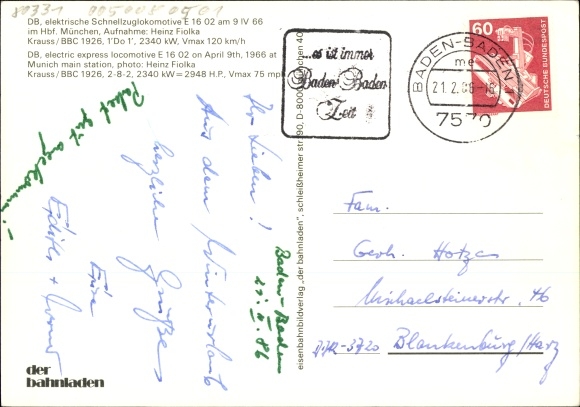 80331 005008 0501
DB, elektrische Schnellzuglokomotive E 16 02 am 9 IV 66
im Hbf. München, Aufnahme: Heinz Fiolka
Krauss / BBC 1926, 1'Do 1', 2340 kW, Vmax 120 km/h
DB, electric express locomotive E 16 02 on April 9th, 1966 at
Munich main station, photo: Heinz Fiolka
Krauss / BBC 1926, 2-8-2, 2340 kW = 2948 H.P., Vmax 75 mph
Paket gut angekommen!
Ihr Lieben!
Aus dem Winterurlaub
herzliche Grüße
Eure
Baden-Baden
21. II. 86
eisenbahnbildverlag „der bahnladen", schleißheimer str. 90, D-8000 München 40
der
bahnladen
...es ist immer
Baden-Baden
Zeit
BADEN-BADEN
me
21.2.86-18
7570
60
DEUTSCHE BUNDESPOST
Fam.
Gerh. Hotzan
Michaelsteinerstr. 46
DDR-3720 Blankenburg/Harz